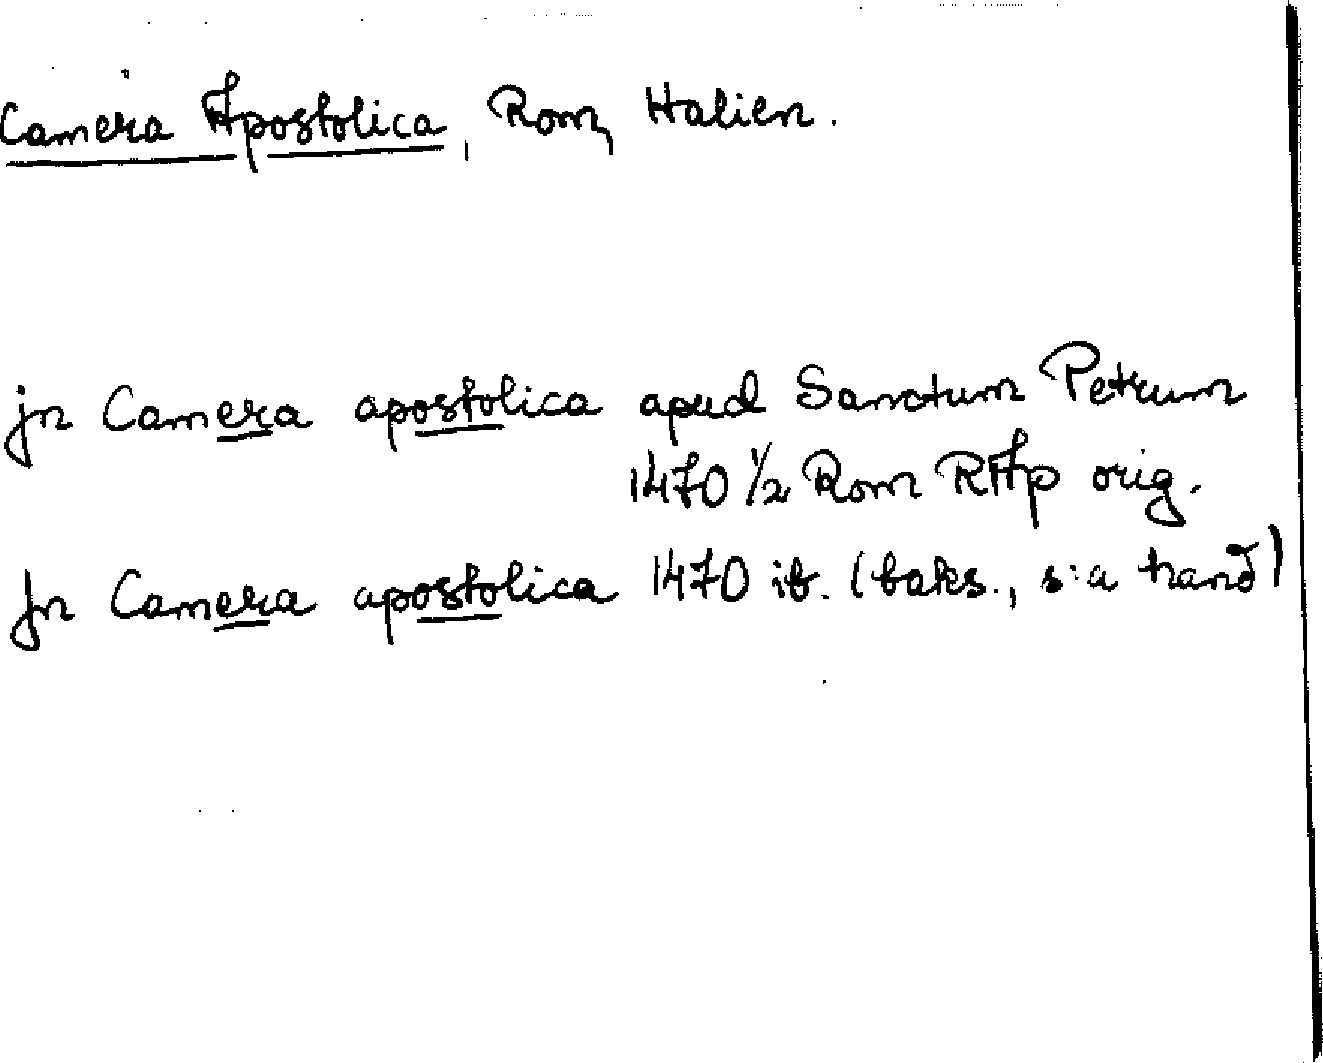 Camera Apostolica, Rom, Italien.
jn Camera apostolica apud Sanctum Petrum
1470 1/2 Rom RAp orig.
Jn Camera apostolica 1470 ib. (baks., s:a hand)